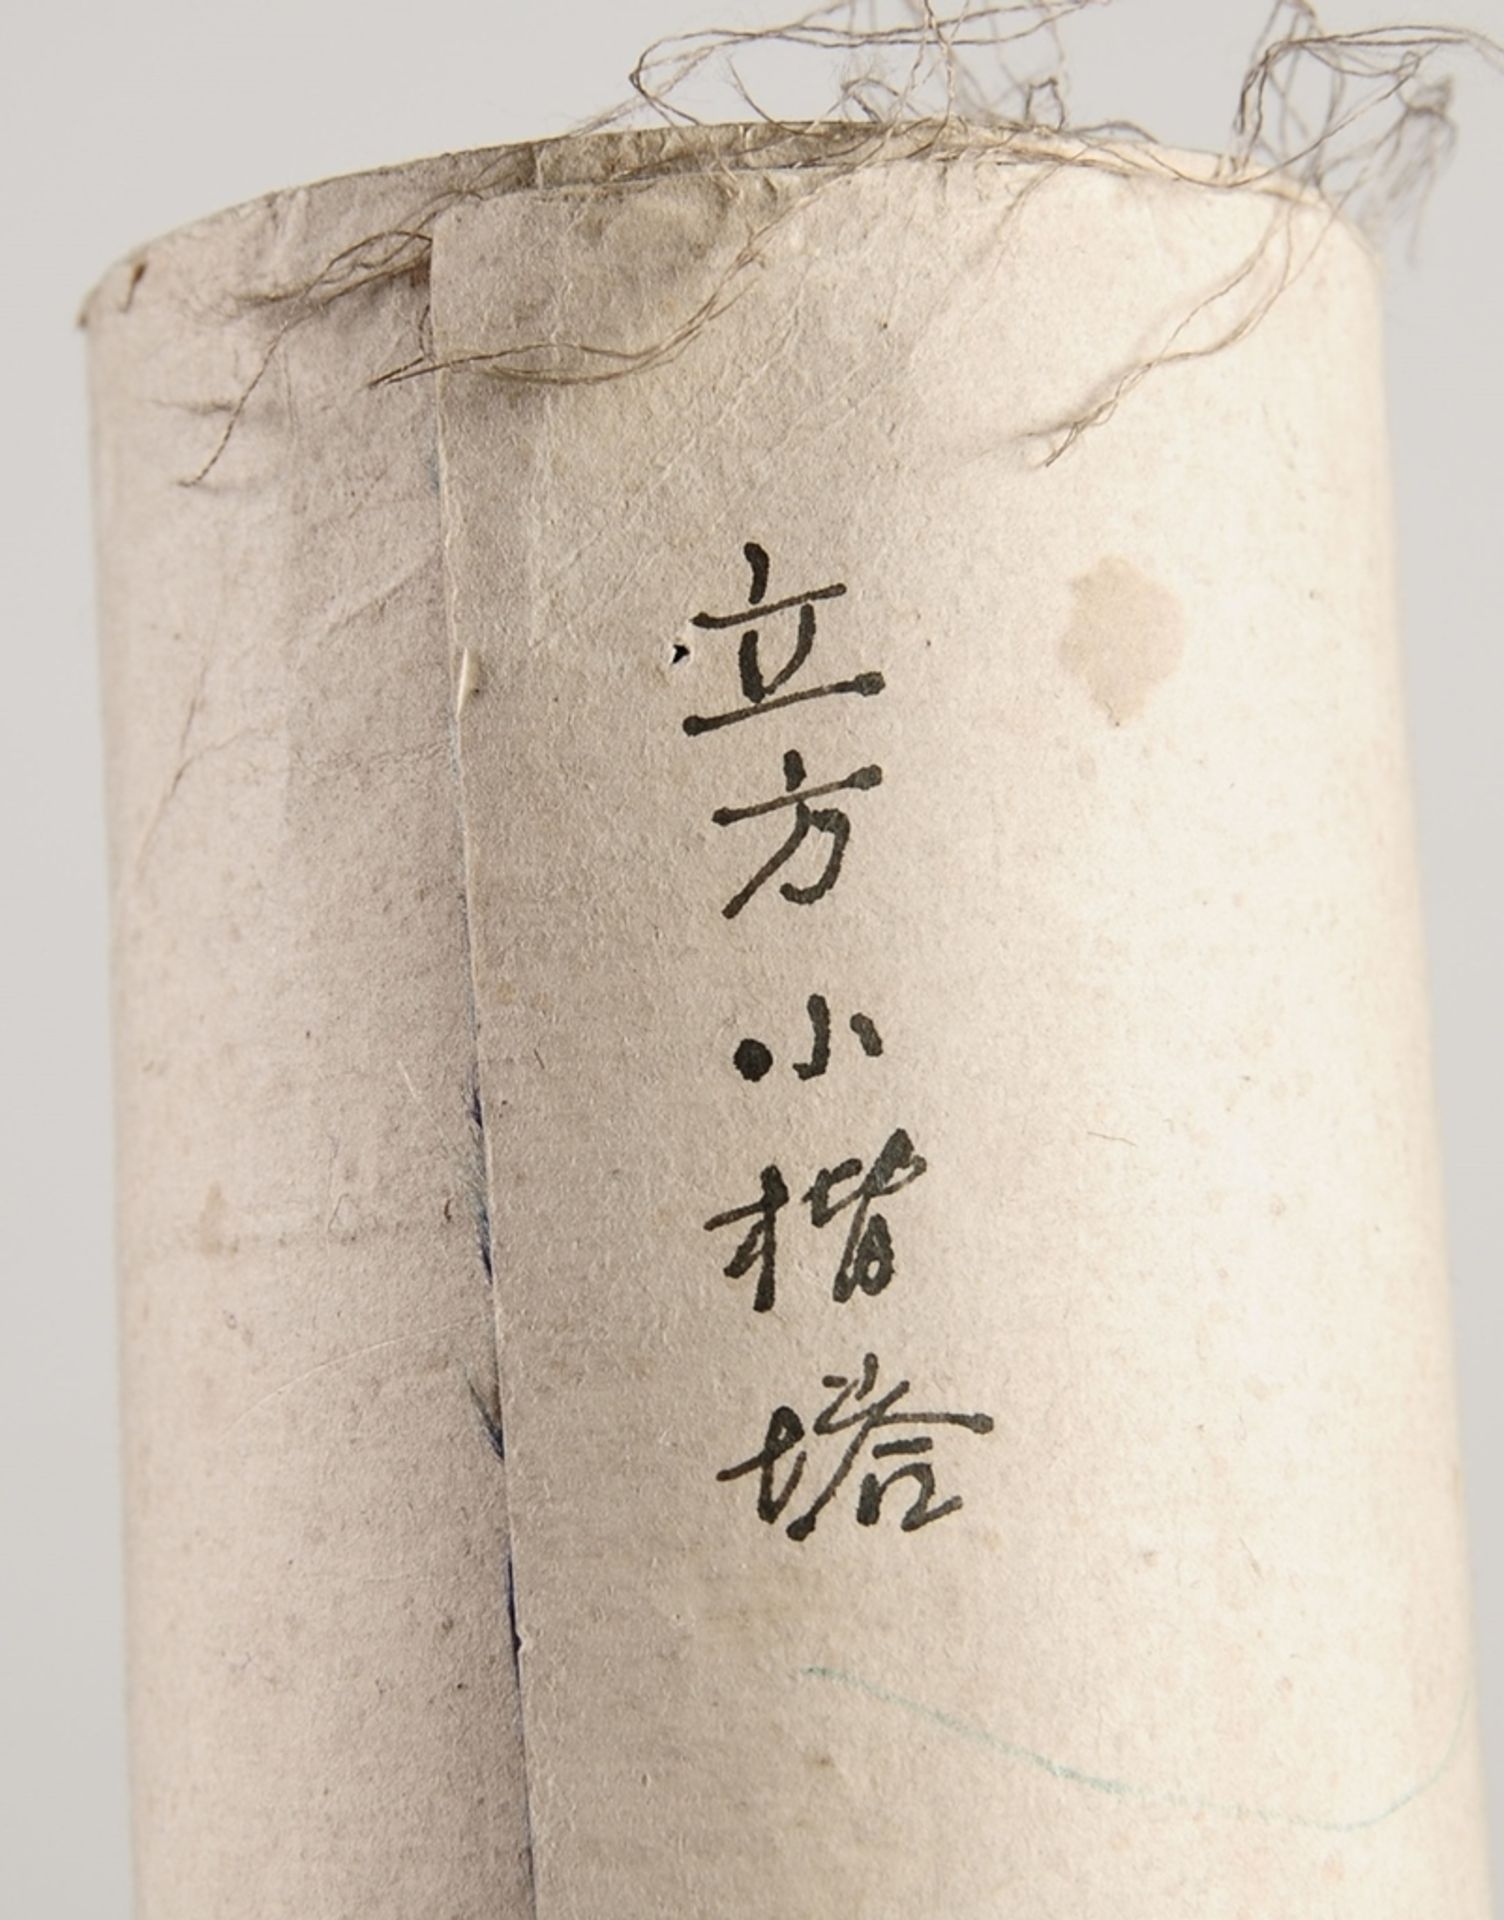 立方小楷塔